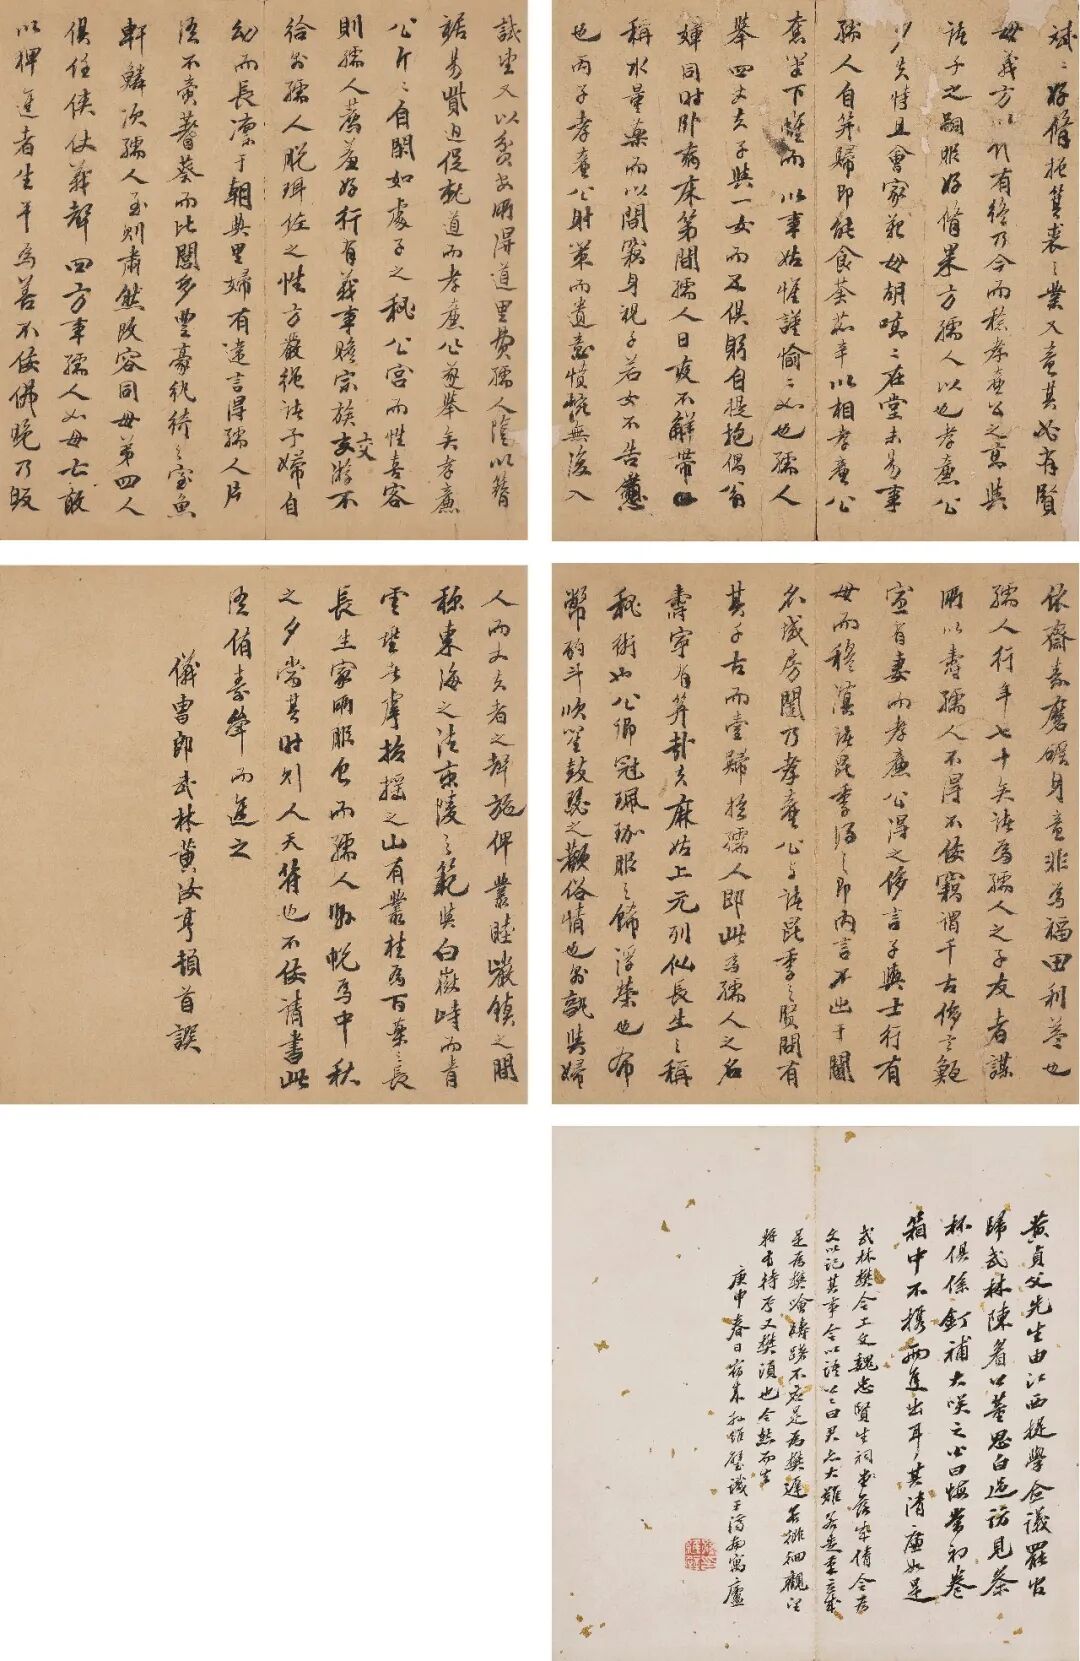 斌二好脩拒箕裘之業又竟其必有賢
母義方以行有終乃今而於孝廉公之寡與
諸子之嗣服好脩方孺人以也孝廉公
少失恃且會家艱母胡嗃二在堂未易事
孺人自笄歸即能食荼茹辛以相孝廉公
奮下帷而以事姑惟謹愉二如也孺人
舉四丈夫子與一女而足俱躬自提抱偶翁
嫜同時卧病床第間孺人日夜不解帶
稱水量藥而以間竊身視子若女不告憊
也丙子孝廉公射策而遺意憤惋無復入
試望又以貧安所得道里費孺人陰以簪
裾易貲迫促就道而孝廉公遂舉矣孝廉
公斤二自閑如處子之秘公宮而性喜客
則孺人薦羞好行有義事贍宗族交游不
給則孺人脫珥佐之性方嚴繩諸子婦自
幼而長凜于朝典里婦有違言得孺人片
語不啻蓍蔡而比閭多豐豪紈綺之室魚
軒鱗次孺人至則肅然改容同母弟四人
俱任俠仗義聲四方事孺人如母亡敢
以狎進者生平為善不佞佛晚乃皈
依齋素磨礪身意非為福田利益也
孺人行年七十矣諸為孺人之子友者謀
所以壽孺人不得不佞竊謂千古侈言
室有妻而孝廉公得之侈言子與士行有
母而穆溟諸昆季得之即內言不出于閫
名域房闥乃孝廉公与諸昆季之賢聞有
其千古而壹歸極孺人即此為孺人之名
壽寧有筭哉夫麻姑上元列仙長生之稱
秘術也公卿冠珮珈服之飾浮榮也布
幣酌斗吹笙鼓瑟之歡俗情也安孰與婦
人而丈夫者之聲施俾叢睦巖鎮之間
稱東海之法京陵之範與白嶽峙而青
雲壁者虖招搖之山有叢桂為百藥之長
長生家所服食而孺人帨為中秋
之夕當其時則人天符也不佞請書此
語侑壽觴而進之
儀曹郎武林黃汝亨頓首譔
黃貞父先生由江西提學僉議罷官
歸武林陳眉公董思白過訪見茶
杯俱係釘補大笑之公曰悔當初卷
箱中不携兩隻出耳其清廉如是
武林樊令工文魏忠賢生祠落成倩令為
文以記其事令以語公曰君亡大難若走筆立成
是為樊噲躊躇不應是為樊遲若徘徊觀望
將有待焉又樊須也令默而去
庚申春日宿遷孔雄璧識于濟南寓廬